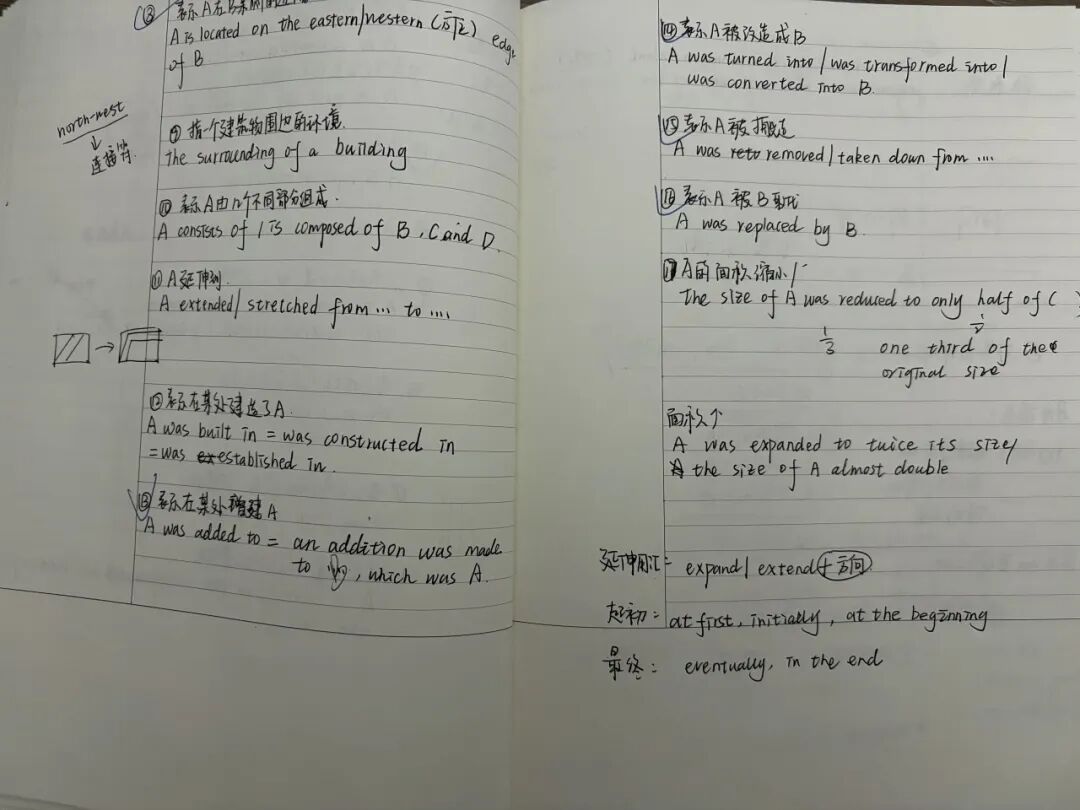 ⑧ 表示A在B某侧的边
A is located on the eastern/western (方位) edge
of B
north-west
↓
连接符.
⑨ 指一个建筑物周边的环境.
the surrounding of a building
⑩ 表示A由几个不同部分组成.
A consists of / is composed of B, C and D.
⑪ A延伸到.
A extended/ stretched from ... to ....
→
⑫ 表示在某处建造了A.
A was built in = was constructed in
= was established in.
⑬ 表示在某处增建A
A was added to = an addition was made
to, which was A.
⑭ 表示A被改造成B
A was turned into / was transformed into /
was converted into B.
⑮ 表示A被拆走
A was removed / taken down from ....
⑯ 表示A被B取代
A was replaced by B.
⑰ A的面积缩小/
The size of A was reduced to only half of (
1/2
1/3 one third of the
original size
面积个
A was expanded to twice its size/
the size of A almost double
延伸 = expand / extend + 方向
起初: at first, initially, at the beginning
最终: eventually, in the end